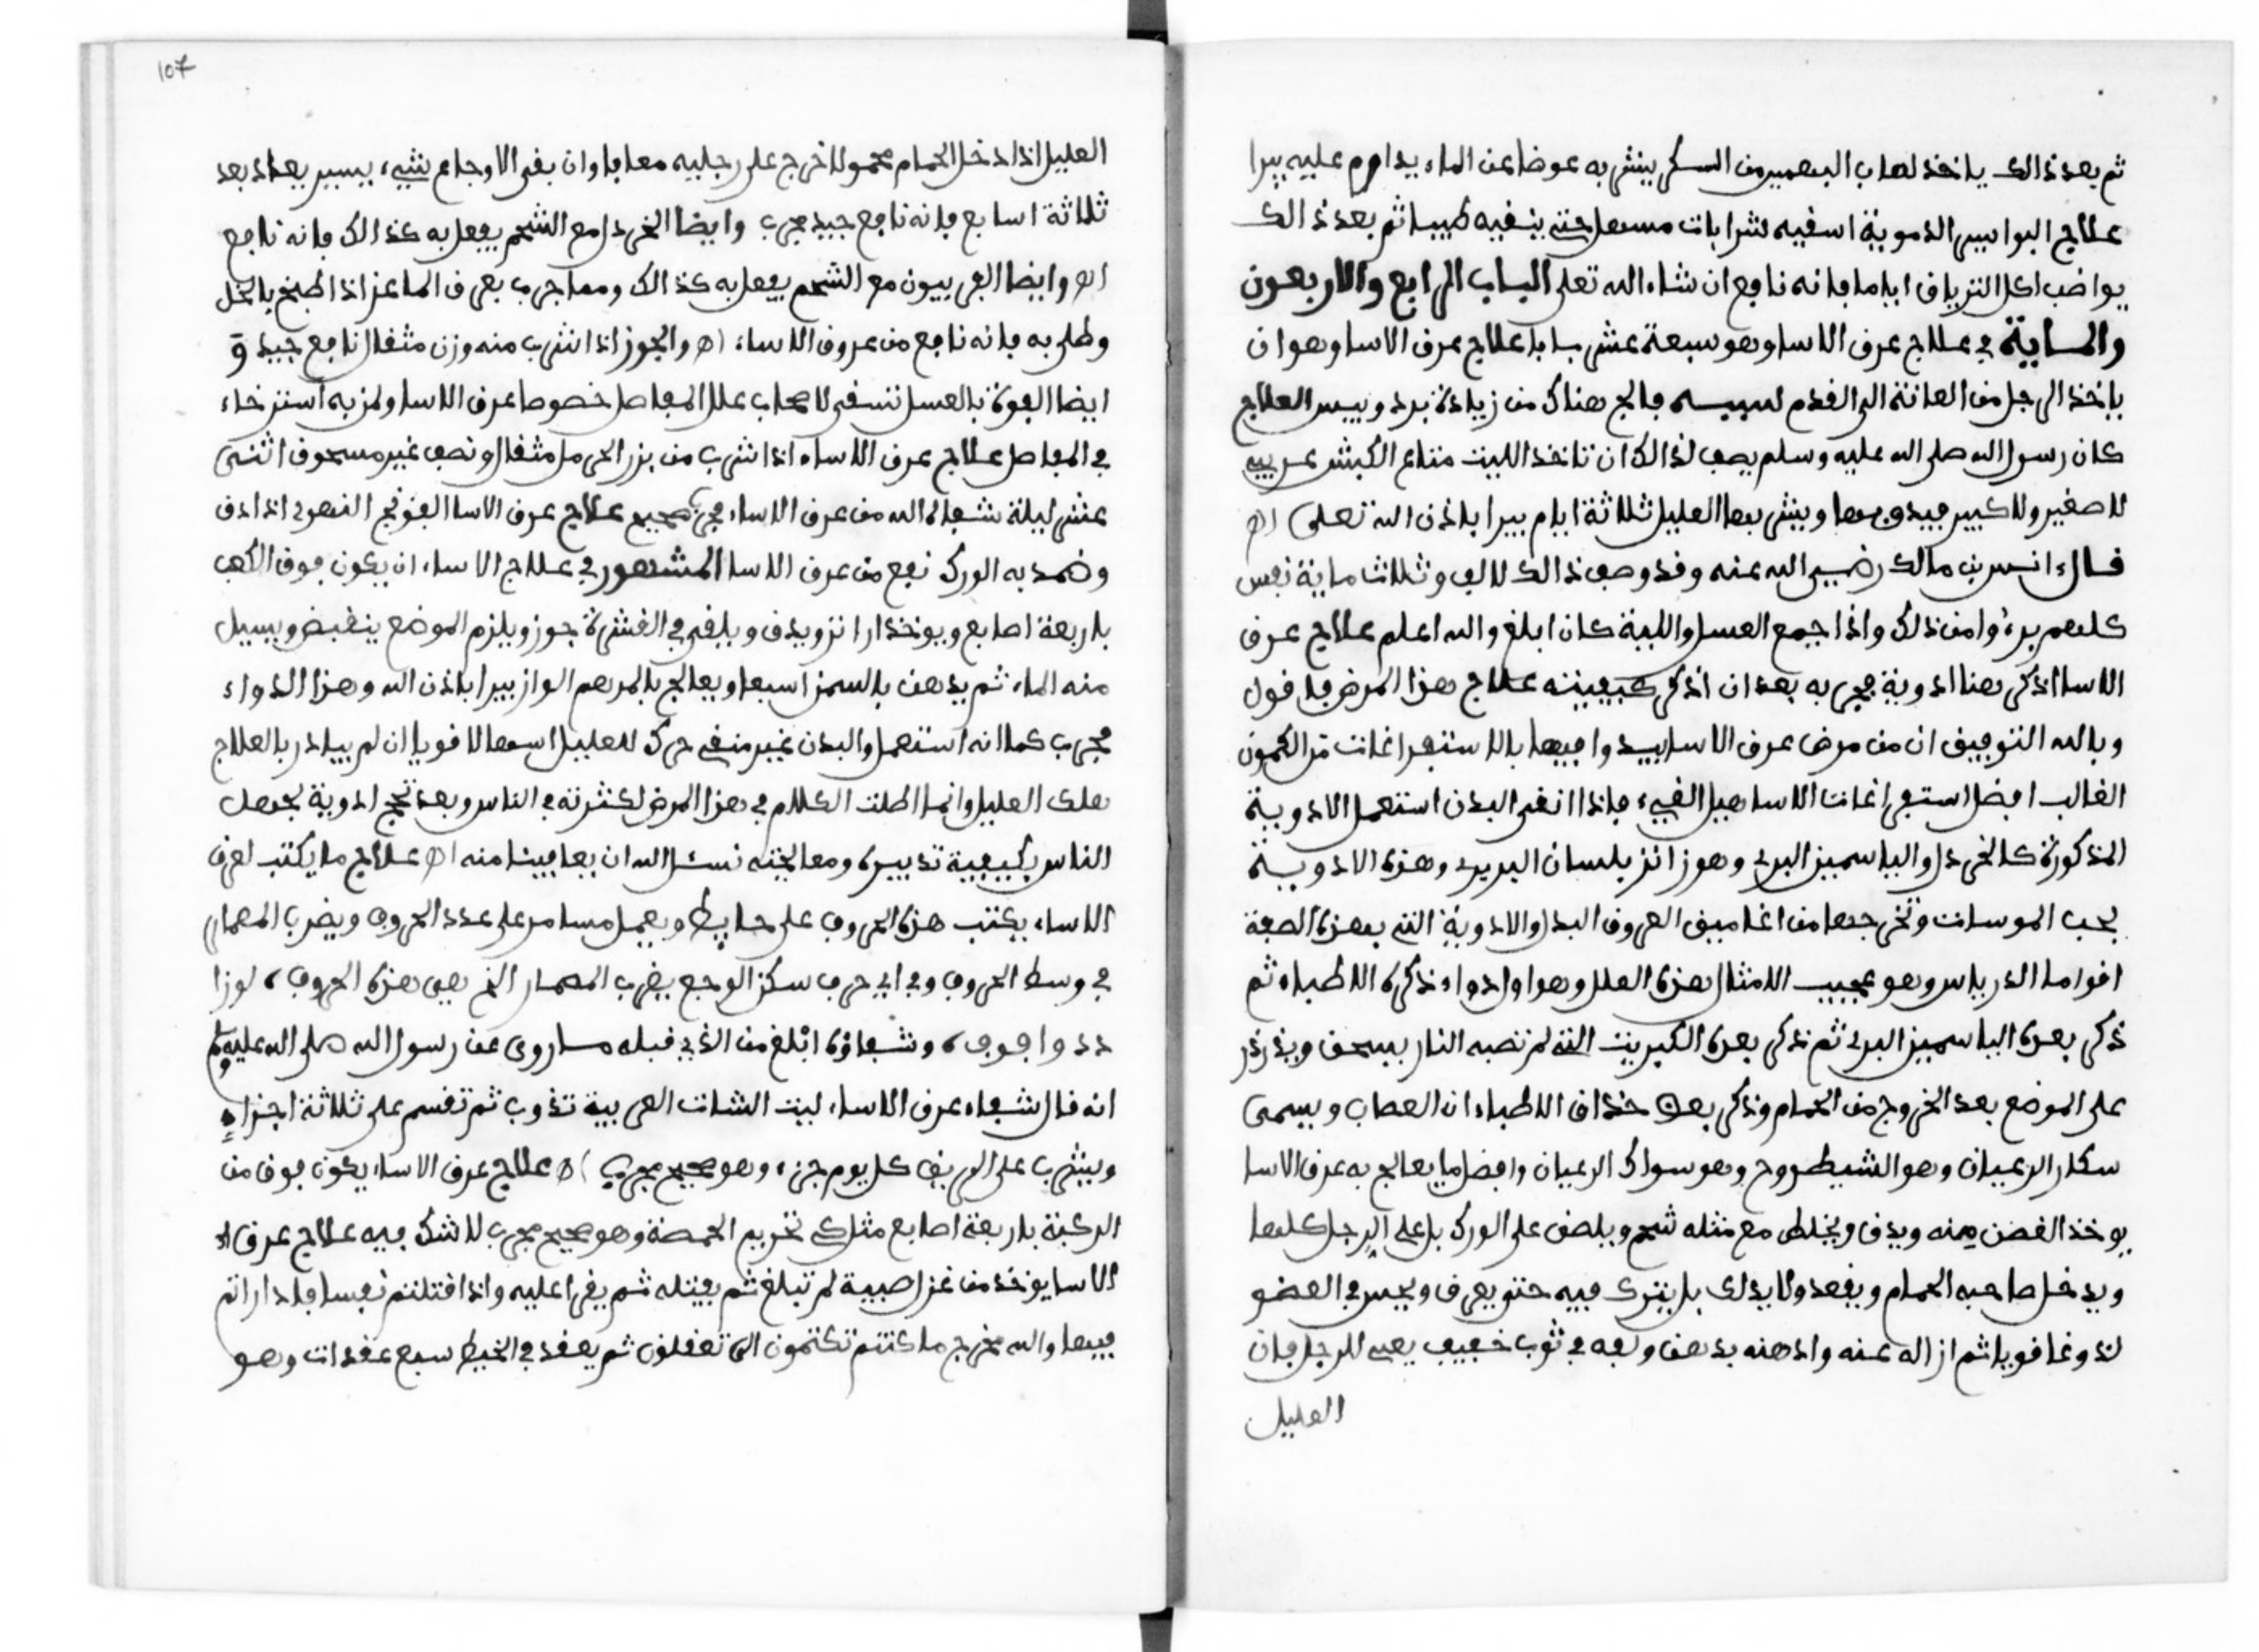 ثم بعد ذالك ياخذ لعاب البصمير من السكر ينشر به عوضا عن الماء يداوم عليه يبرا
علاج البواسير الدموية اسفيه شرابات مسهل حتى ينفيه طيبا ثم بعد ذالك
يواضب اكل الترياق اياما فانه نافع ان شاء الله تعلى الباب الرابع والاربعون
والماية في علاج عرق الاسا وهو سبعة عشر بابا علاج عرق الاسا وهو ان
ياخذ الرجل من العانة الى القدم فالج هناك من زيادة برد ويبس العلاج
كان رسول الله صلى الله عليه وسلم يصف لذالك ان تاخذ الليت متاع الكبش عربيه
لا صغير ولا كبير ويشربها العليل ثلاثة ايام يبرا باذن الله تعلى اه
قال انس بن مالك رضي الله عنه وقد وصف ذالك لالف وثلاث ماية نفس
كلهم برءوا من ذلك واذا جمع العسل والية كان ابلغ والله اعلم علاج عرق
الاسا اذكر هنا ادوية مجربه بعد ان اذكر كيفيته علاج هذا المرض فاقول
وبالله التوفيق ان من مرض عرق الاسا يبدوا فيها بالاستفراغات من الكمون
الغالب افضل استفراغات الاسا هبل القيء فاذا انقى البدن استعمل الادوية
المذكورة كالخردل والياسمين البري وهو زانز بلسان البربر وهذه الادوية
تجب الموسات وتخرجها من اغاميق العروق البدل والادوية التي بهذه الصفة
اقواما الدرياس وهو عجيب الامثال هذه العلل وهو اول دواء ذكره الاطباء ثم
ذكر بعده الياسمين البري ثم نذكر بعده الكبريت التي لم تصبه النار يسحق ويذرذر
على الموضع بعد الخروج من الحمام وذكر بعض حذاق الاطباء ان العصاب ويسمى
سكار الرعيان وهو الشيطروح وهو سواك الرعيان وافضل ما يعالج به عرق الاسا
يوخذ الغصن منه ويدق ويخلط مع مثله شحم ويلصق على الورك بل على الرجل كلها
ويدخل صاحبه الحمام ويقعد ولا يدلك بل يترك فيه حتى يعرق ويحس في العضو
لذوغا قويا ثم ازاله عنه وادهنه بدهن ولفه في ثوب خفيف يعني الرجل فان
العليل
107
العليل اذا دخل الحمام محمولا خرج على رجليه معافا وان بقي الاوجاع شيء يسير يعاد بعد
ثلاثة اسابع فانه نافع جيد مجرب وايضا الخردل مع الشحم يفعل به كذالك فانه نافع
اه وايضا الفربيون مع الشحم يفعل به كذالك ومما جرب بعر ف الماعز اذا طبخ بالخل
وطلى به فانه نافع من عروق الاساء اه والجوز اذا شرب منه وزن مثقال نافع جيد و
ايضا الفوة بالعسل تسقى لاصحاب علل المفاصل خصوصا عرق الاسا ولمن به استرخاء
في المفاصل علاج عرق الاساء اذا شرب من بزر الحرمل مثقال ونصف غير مسحوق اثنى
عشر ليلة شفاه الله من عرق الاساء مجرب صحيح علاج عرق الاسا الفوذنج النهري اذا دق
وضمد به الورك نفع من عرق الاسا المشهور في علاج الاساء ان يكون فوق الكعب
باربعة اصابع ويوخذ ارانزو يدق ويلقى في القشرة جوز ويلزم الموضع ينقبض ويسيل
منه الماء ثم يدهن بالسمن اسبعا ويعالج بالمرهم الوازن يبرا باذن الله وهذا الدواء
مجرب كما انه استعمل والبدن غير منقي حرك للعليل اسهالا قويا ان لم يبادر بالعلاج
هلك العليل وانما اطلت الكلام في هذا المرض لكثرته في الناس وبعد تجح ادوية لجهل
الناس بكيفية تدبيره ومعالجته نسئل الله ان يعافينا منه اه علاج ما يكتب لعرق
الاساء يكتب هذه الحروف على حايط ويعمل مسامر على عدد الحروف ويضرب المصمار
في وسط الحروف وفي اي حرف سكن الوجع يضرب المصمار الذي هي هذه الحروف ، لوزا
دد واجوف ، وشفاؤه ابلغ من الذي قبله ما روى عن رسول الله صلى الله عليه وسلم
انه قال شفاء عرق الاساء ليت الشات العربية تذوب ثم تقسم على ثلاثة اجزاء
ويشرب على الريق كل يوم جزء وهو صحيح مجرب اه علاج عرق الاساء يكون فوق من
الركبة باربعة اصابع مثلك تخريم الحمصة وهو صحيح مجرب لا شك فيه علاج عرق
الاسا يوخذ من غزل صبية لم تبلغ ثم يفتله ثم يقرا عليه واذا قتلتم نفسا فاداراتم
فيها والله مخرج ما كنتم تكتمون الى تعقلون ثم يعقد في الخيط سبع عقدات وهو